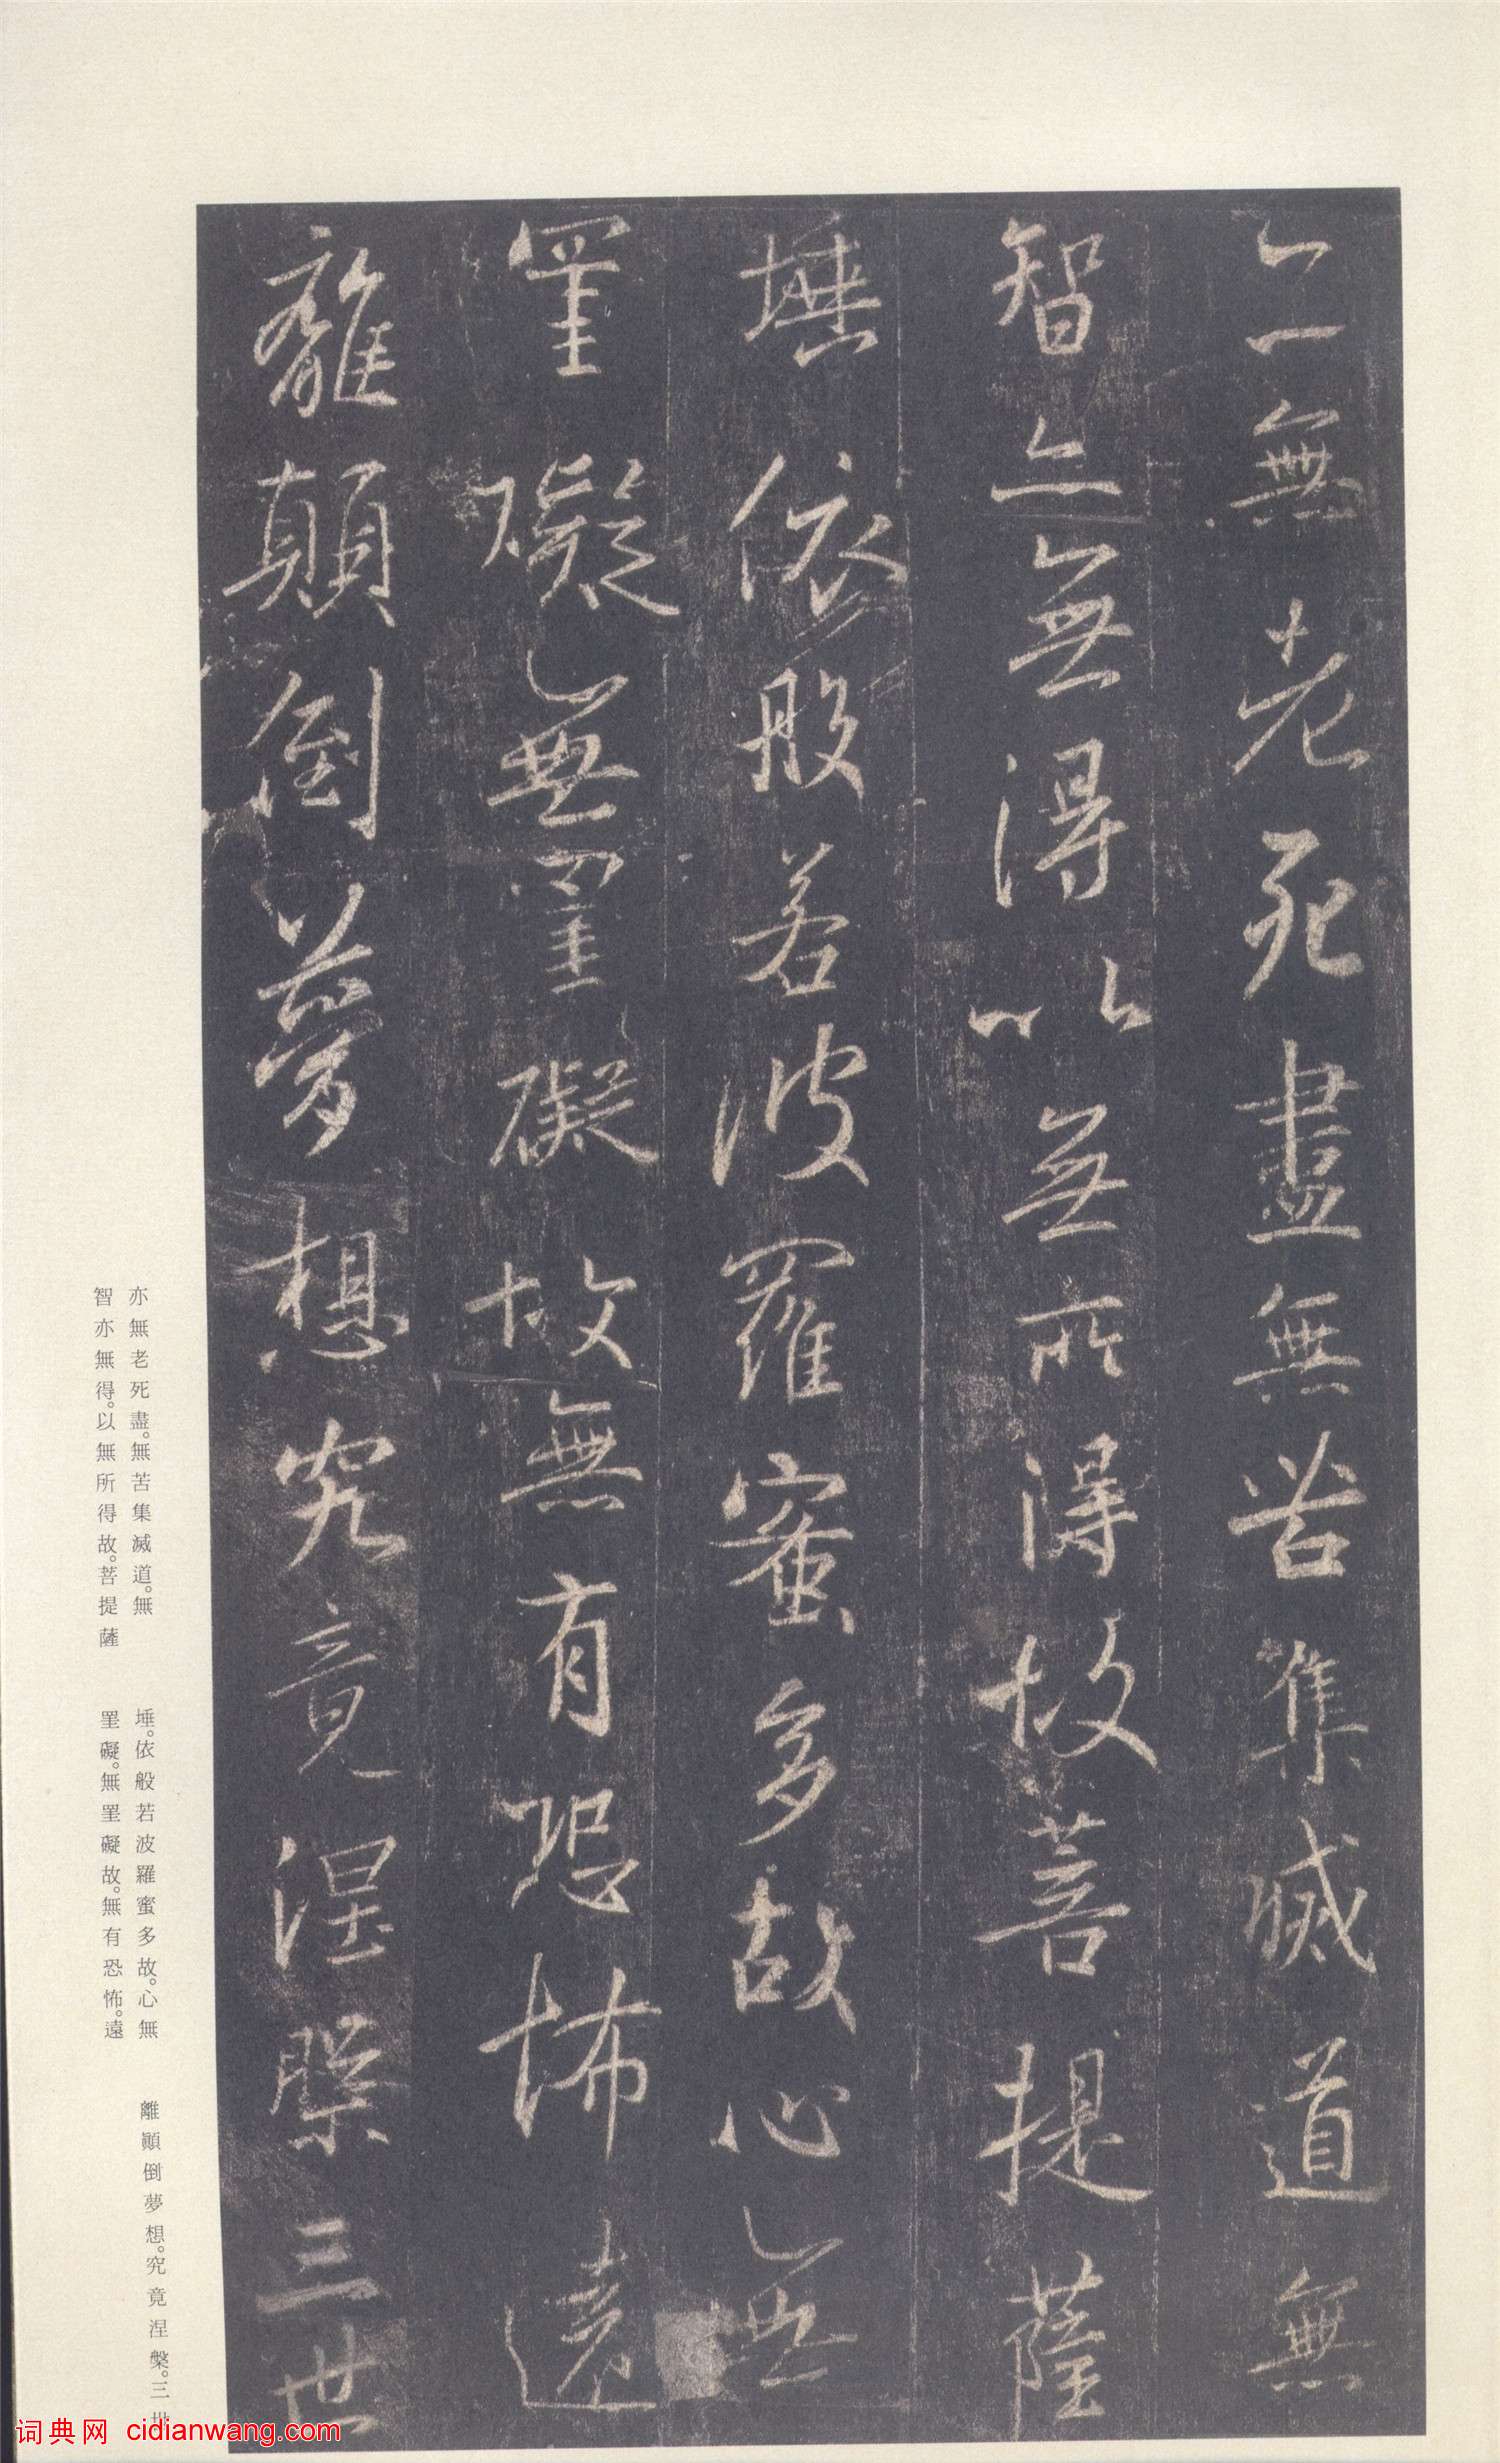 亦無老死盡無苦集滅道無
智亦無得以無所得故菩提薩
埵依般若波羅蜜多故心無
罣礙無罣礙故無有恐怖遠
離顛倒夢想究竟涅槃三世
亦無老死盡。無苦集滅道。無
智亦無得。以無所得故。菩提薩
埵。依般若波羅蜜多故。心無
罣礙。無罣礙故。無有恐怖。遠
離顛倒夢想。究竟涅槃。三世
词典网 cidianwang.com